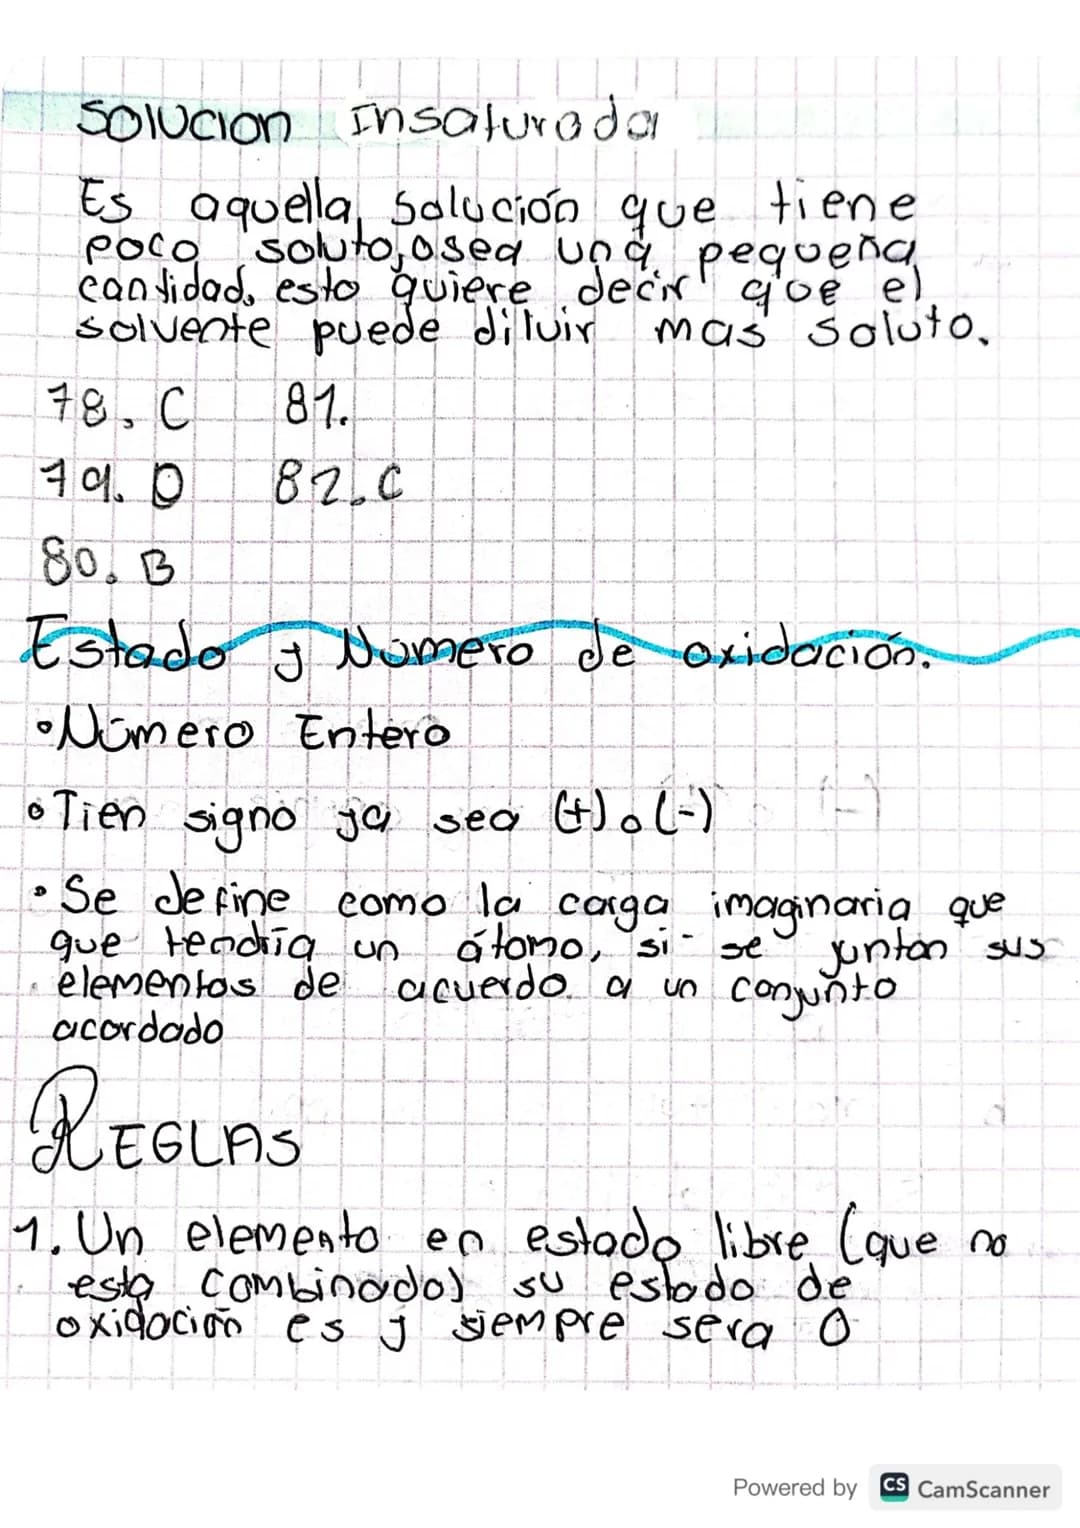 Solucion Insaturada
Es aquella solución que tiene
poco soluto, osea una pequeña
cantidad, esto quiere decir que el
solvente puede diluir mas soluto.
78. C 81.
79. D 82. C
80. B
Estado y Número de oxidación.
• Número Entero
• Tien signo ya sea (+) o (-)
• Se define como la carga imaginaria que
que tendría un átomo, si se juntan sus
elementos de acuerdo a un conjunto
acordado
REGLAS
1. Un elemento en estado libre (que no
esta combinado) su estado de
oxidación es y siempre sera 0
Powered by CS CamScanner